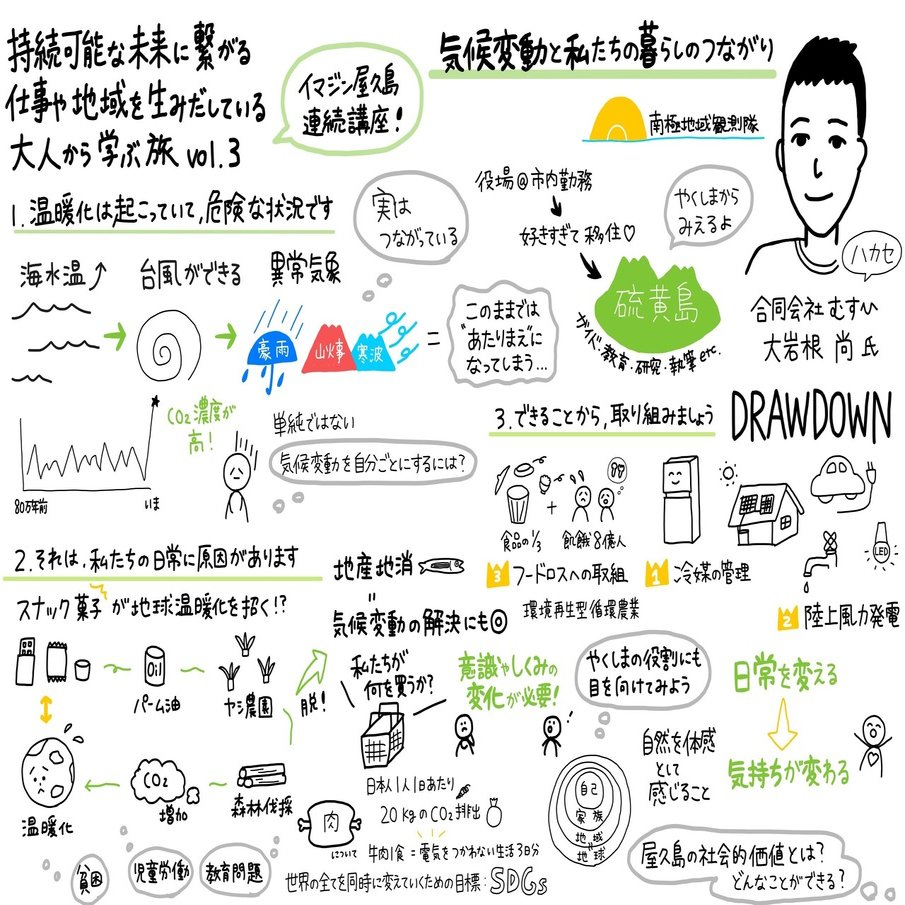 持続可能な未来に繋がる
仕事や地域を生みだしている
大人から学ぶ旅 vol.3
イマジン屋久島
連続講座!
気候変動と私たちの暮らしのつながり
南極地域観測隊
役場@市内勤務
好きすぎて移住♡
やくしまから
みえるよ
硫黄島
ガイド・教育・研究・執筆etc.
ハカセ
合同会社むすひ
大岩根 尚 氏
1.温暖化は起こっていて,危険な状況です
実は
つながっている
海水温↑
台風ができる
異常気象
豪雨
山火事
寒波
=
このままでは
"あたりまえ"に
なってしまう...
CO2濃度が
高!
80万年前
いま
単純ではない
気候変動を自分ごとにするには?
2.それは,私たちの日常に原因があります
スナック菓子が地球温暖化を招く!?
Oil
パーム油
ヤシ農園
脱!
温暖化
CO2
増加
森林伐採
貧困
児童労働
教育問題
地産地消
=
気候変動の解決にも◎
私たちが
何を買うか?
意識やしくみの
変化が必要!
日本人1人1日あたり
20kgのCO2排出
肉
について
牛肉1食=電気をつかわない生活3日分
世界の全てを同時に変えていくための目標:SDGs
3.できることから,取り組みましょう
DRAWDOWN
+
食品の1/3
飢餓8億人
3 フードロスへの取組
環境再生型循環農業
1 冷媒の管理
LED
2 陸上風力発電
やくしまの役割にも
目を向けてみよう
自己
家族
地域
地球
自然を体感
として
感じること
日常を変える
気持ちが変わる
屋久島の社会的価値とは?
どんなことができる?